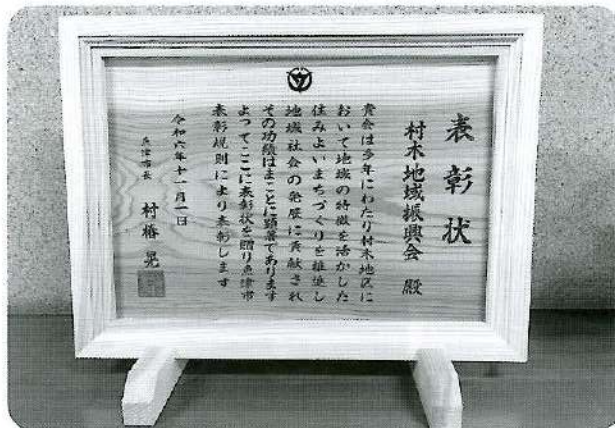 表彰状
村木地域振興会 殿
貴会は多年にわたり村木地区に
おいて地域の特徴を活かした
住みよいまちづくりを推進し
地域社会の発展に貢献され
その功績はまことに顕著であります
よってここに表彰状を贈り魚津市
表彰規則により表彰します
令和六年十一月一日
魚津市長 村椿 晃